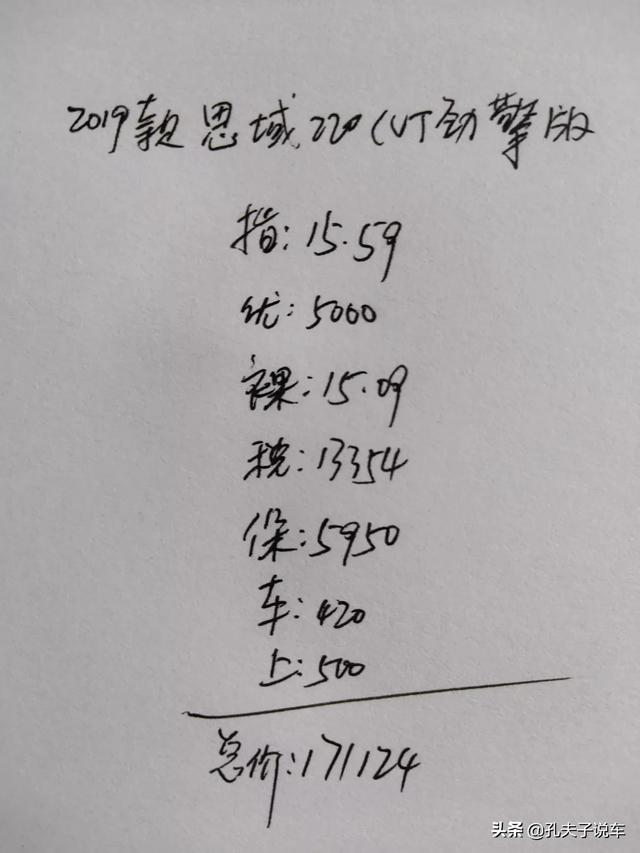 2019款思域220CVT劲擎版
指:15.59
优:5000
裸:15.09
税:13354
保:5950
车:420
上:500
总价:171124
头条 @孔夫子说车